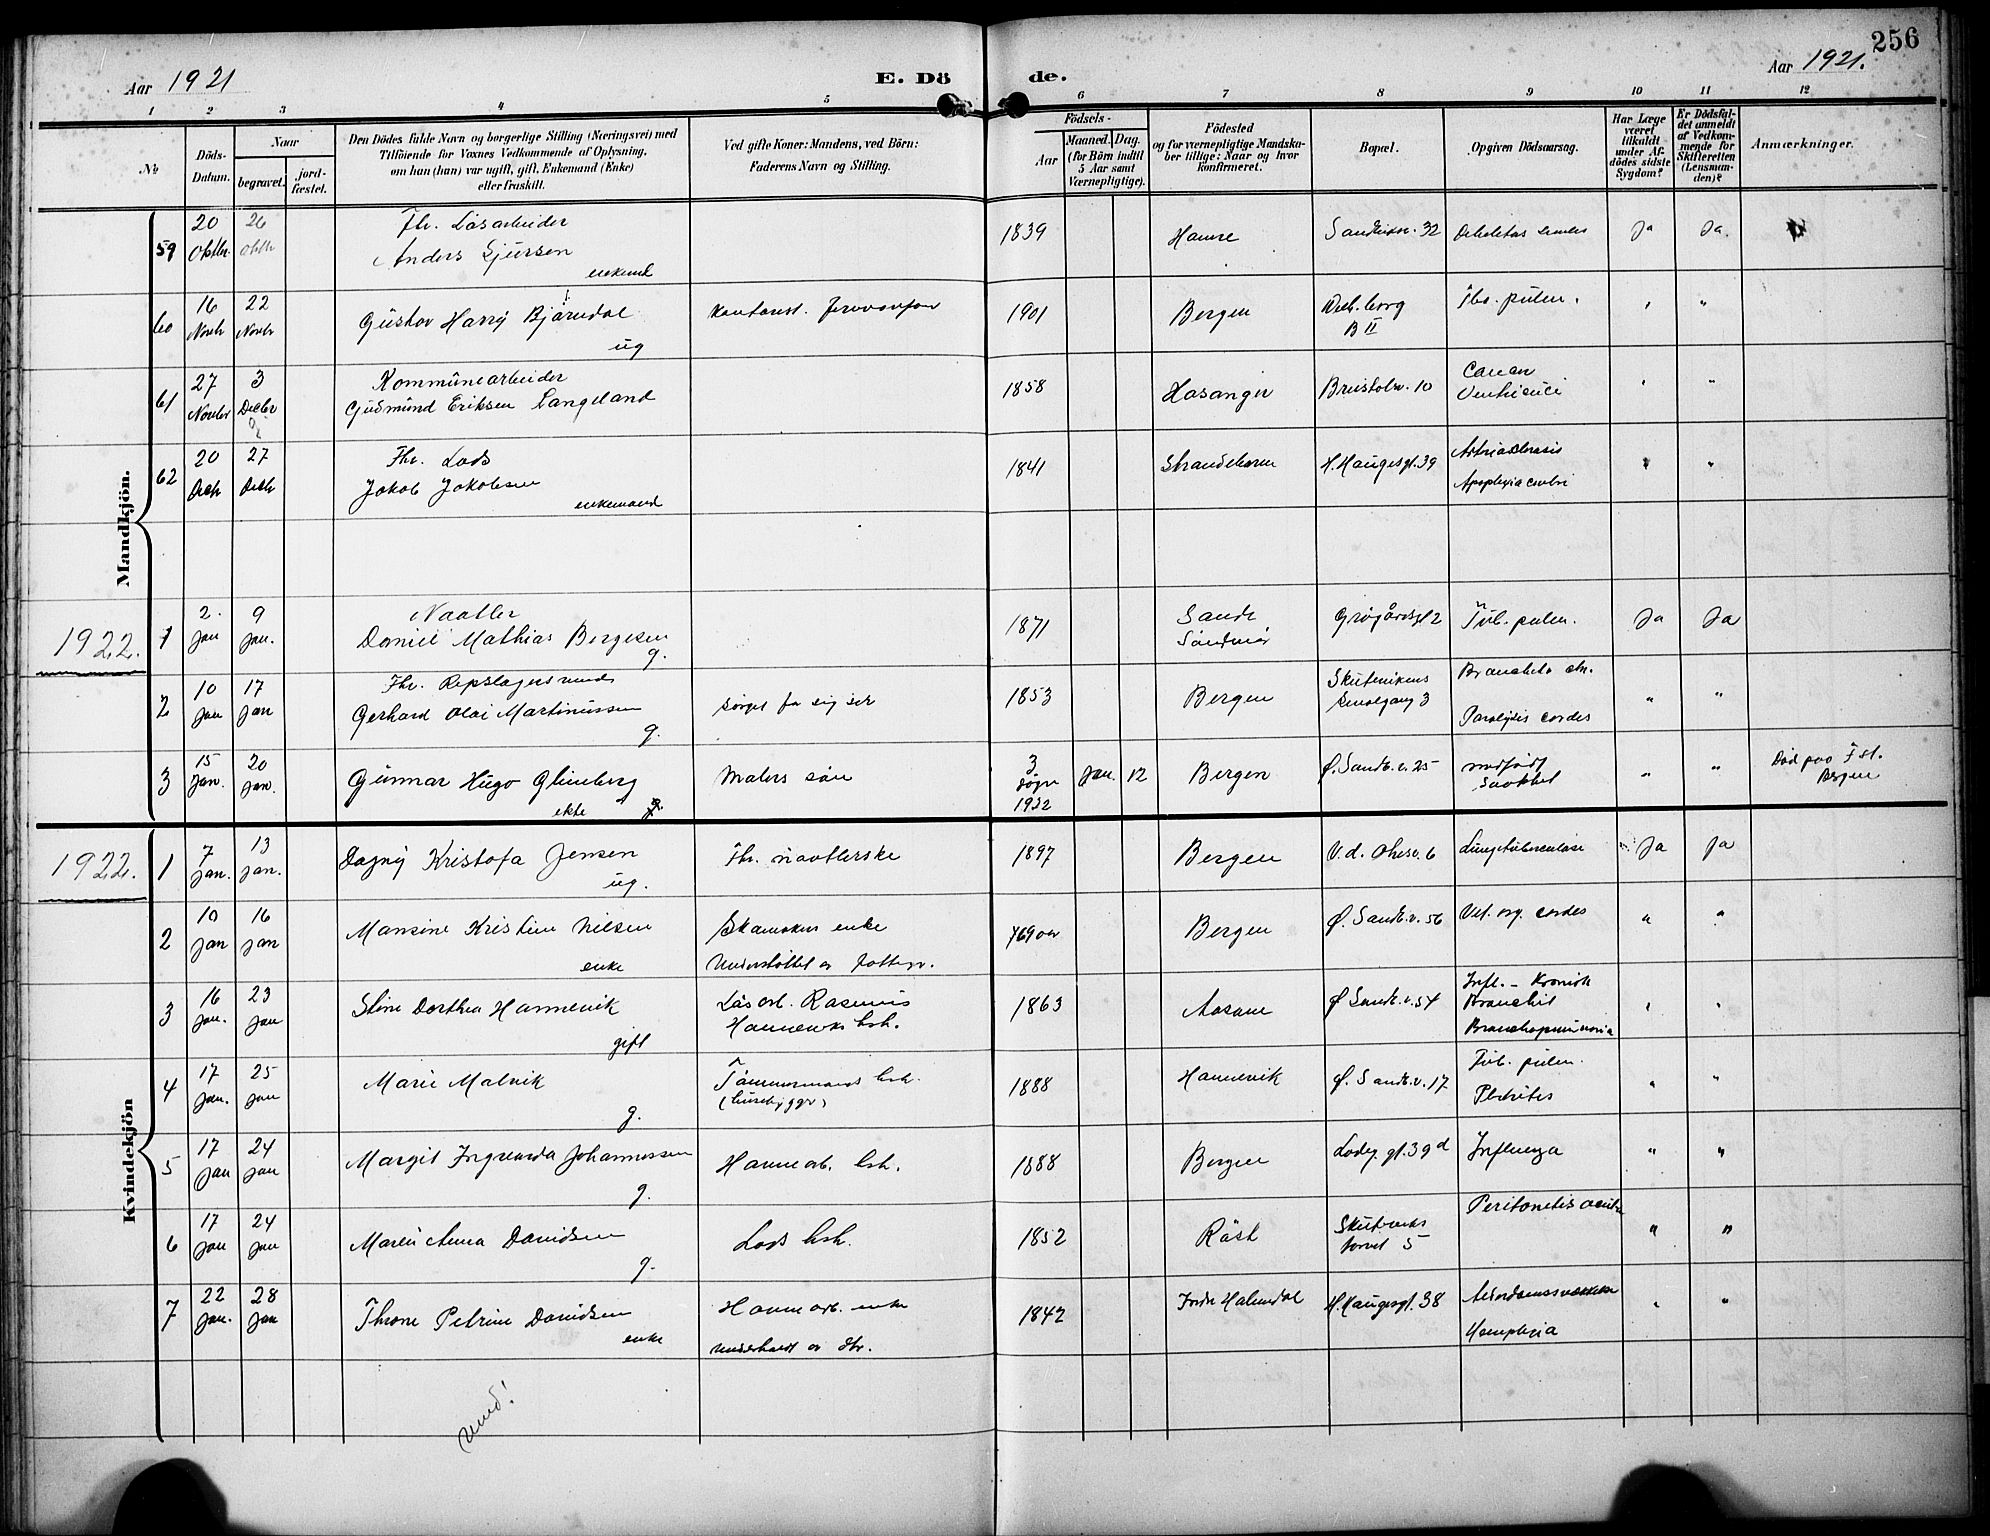 256
Aar 1921
E. Dö de.
Aar 1921.
1 2 3 4 5 6 7 8 9 10 11 12
No
Döds-Datum.
Naar
begravet.
jord-fæstet.
Den Dödes fulde Navn og borgerlige Stilling (Næringsvei) med
Tilföiende for Voxnes Vedkommende af Oplysning,
om han (hun) var ugift, gift, Enkemand (Enke)
eller fraskilt.
Ved gifte Koner: Mandens, ved Börn:
Faderens Navn og Stilling.
Födsels-
Aar
Maaned.
Dag.
(for Börn indtil
5 Aar samt
Værnepligtige).
Födested
og for værnepligtige Mandska-
ber tillige: Naar og hvor
konfirmeret.
Bopæl.
Opgiven Dödsaarsag.
Har Læge
været
tilkaldt
under Af-
dödes sidste
Sygdom?
Er Dödsfal-
det anmeldt
af Vedkom-
mende for
Skifteretten
(Lensman-
den)?
Anmærkninger.
Mandkjön.
59 20 Oktbr. 26 Oktbr
Fhv. Løsarbeider
Anders Sjursen
enkemd
1839 Hamre 32 Ja Ja.
60 16 Novbr 22 Novbr
Gustav Harry Bjørndal
ug
1901 Bergen
B II
Tbc. pulm. " "
61 27 Novbr 3 Decbr
Kommunearbeider
Gudmund Eriksen Langeland
1858 Hosanger 10
Cancer
Ventriculi " "
62 20 Decb 27 Decb
Fhv. Lods
Jakob Jakobsen
enkemand
1841 Strandebarm H. Haugesgt. 39
Apoplexia cerebri " "
1922.
1 2. Jan 9 Jan.
Naatler
Daniel Mathias Børgesen
g.
1871 Sande
Søndmør
2 Tub. pulm. Ja Ja
2 10 Jan 17 Jan
Fhv. Repslagersvend
Gerhard Olai Martinussen
g.
sørget for sig selv
1853 Bergen
Skutevikens
3
Paralysis cordis " "
3 15 Jan. 20 Jan.
Gunnar Hugo Glimberg
ekte
Malers søn
3
døgn
1922
Jan. 12 Bergen Ø. Sandv.v. 25
medfødt
Svakhet " "
Død paa Fst.
Bergen
Kvindekjön
1922.
1 7 Jan. 13 Jan.
Dagny Kristofa Jensen
ug.
Fhv. naatlerske
1897 Bergen 6 Lungetuberculose Ja Ja
2 10 Jan 16 Jan
Mansine Kristine Nilsen
enke
enke
Understøttet av fattigv.
69 aar Bergen Ø. Sandv.v. 56 Vit. org. cordis " "
3 16 Jan. 23 Jan
Stine Dorthea Hannevik
gift
Løsarb. Rasmus
Hanneviks hsh.
1863 Aasane Ø Sandv.v. 54
Infl. - Kronisk
Bronchit
Bronchopneumonia " "
4 17 Jan. 25 Jan
Marie Malvik
g.
Tømmermands hsh.
1888 Hannevik Ø. Sandv.v. 17
Tub. pulm.
Pleuritis " "
5 17 Jan 24 Jan
Margit Ingvarda Johannessen
g.
Havnearb. hsh.
1888 Bergen 39 d Influenza " "
6 17 Jan 24 Jan
Maren Anna Davidsen
g.
Lods hsh.
1852 Røst
Skuteviks
torvet 5
Peritonitis acuta " "
7 22 Jan. 28 Jan
Throne Petrine Davidsen
enke
Havnearb. enke
Underholdt av dtr.
1842 Indre Holmedal H. Haugesgt. 38
Alderdomssvækkelse
Hemiplegia " "
vend!